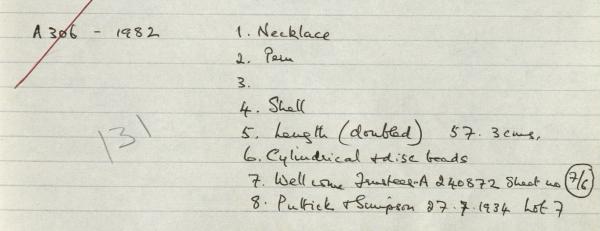 A 306 - 1982
1. Necklace
2. Peru
3.
4. Shell
5. Length (doubled) 57.3 cms.
6. Cylindrical + disc beads
7. Wellcome Trustees - A 240872 Sheet no 7/6
8. Puttick + Simpson 27.7.1934 Lot 7
131